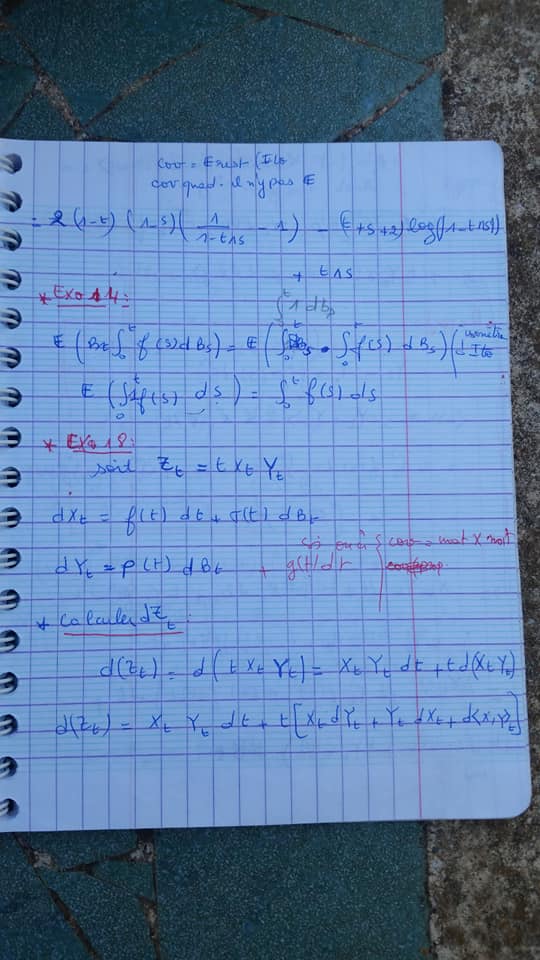 cov = E rest (Ito
cov quad. il n'y pas E
= 2 (1-t) (1-s) ( 1/(1-t∧s) - 1 ) - (t+s+2) log(1-t∧s)
+ t∧s
* Exo 14:
∫₀ᵗ 1 dB
E ( Bt ∫₀ᵗ f(s) dBs ) = E ( ∫₀ᵗ dBs • ∫₀ᵗ f(s) dBs ) ( isométrie d'Ito
E ( ∫₀ᵗ 1 f(s) ds ) = ∫₀ᵗ f(s) ds
* Exo 18:
soit Zt = t Xt Yt
dXt = f(t) dt + σ(t) dBt
dYt = ρ(t) dBt + g(t) dt cov = mot x mot
* Calculer dZt:
d(Zt) = d( t Xt Yt) = Xt Yt dt + t d(Xt Yt)
d(Zt) = Xt Yt dt + t [ Xt dYt + Yt dXt + d<X,Y>t ]